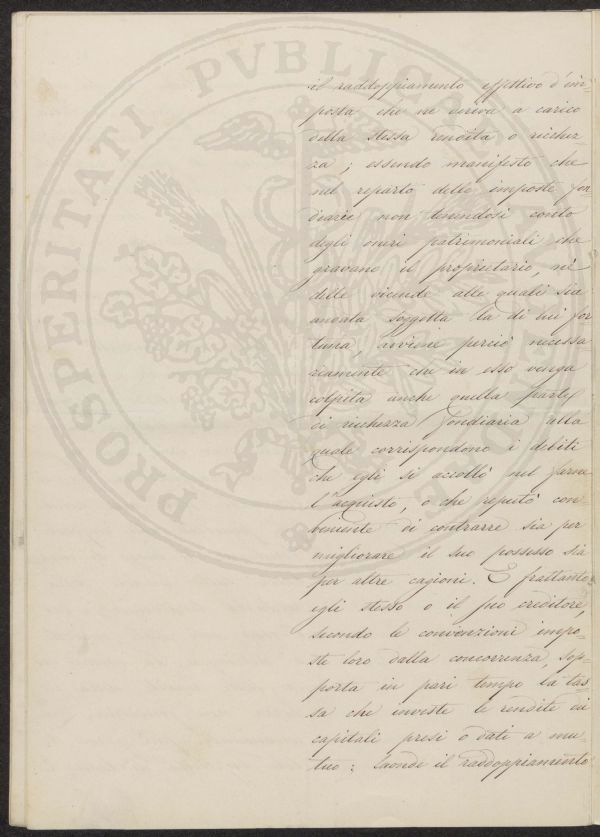 il raddoppiamento effettivo d'im-
posta che ne deriva a carico
della stessa rendita o ricchez
za; essendo manifesto che
nel reparto delle imposte fon-
diarie non tenendosi conto
degli oneri patrimoniali che
gravano il proprietario, nè
delle vicende alle quali sia
andata soggetta la di lui for
tuna, avviene perciò necessa
riamente che in esso venga
colpita anche quella parte
di ricchezza fondiaria alla
quale corrispondono i debiti
che egli si accollò nel farne
l'acquisto, o che reputò con
veniente di contrarre sia per
migliorare il suo possesso sia
per altre cagioni. E frattanto
egli stesso o il suo creditore,
secondo le convenzioni impo-
ste loro dalla concorrenza, sop-
porta in pari tempo la tas
sa che investe le rendite di
capitali presi o dati a mu
tuo: laonde il raddoppiamento
PROSPERITATI PVBLICAE